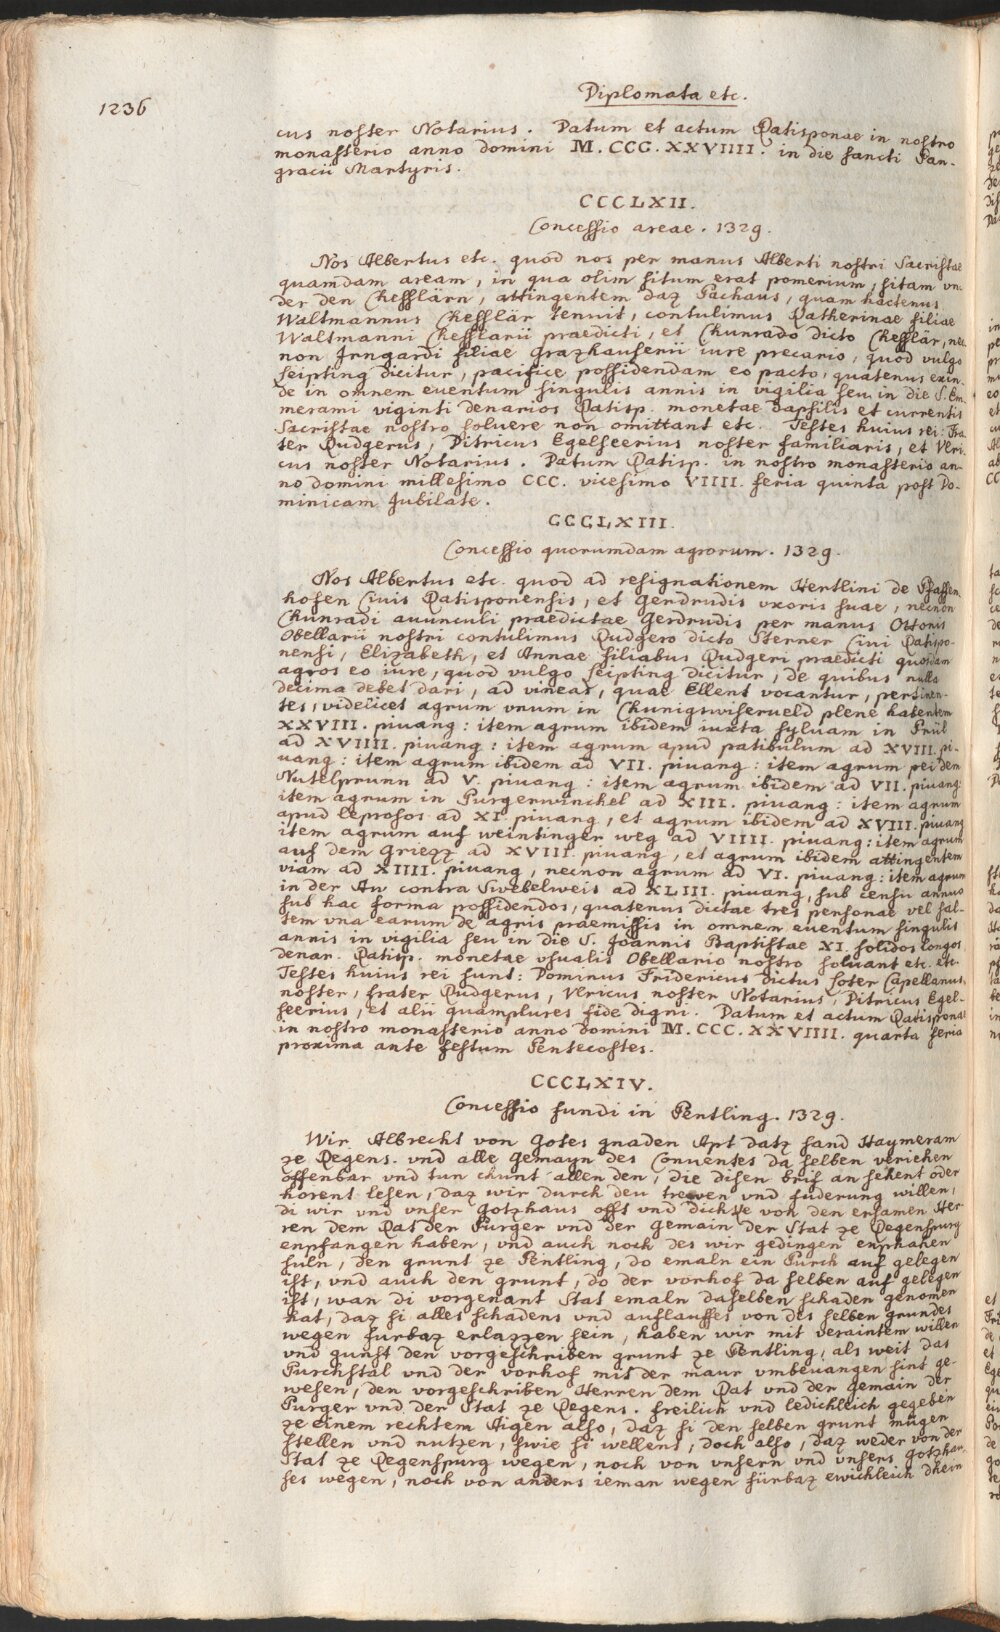 1236
Diplomata etc.
cus noster Notarius. Datum et actum Ratisponae in nostro
monasterio anno domini M.CCC.XXVIIII. in die sancti Pan-
gracii Martyris.
CCCLXII.
Concessio areae. 1329.
Nos Albertus etc. quod nos per manus Alberti nostri Sacristae
quamdam aream, in qua olim situm erat pomerium, sitam vn-
der den Chesslärn, attingentem daz Pachaus, quam hactenus
Waltmannus Chesslär tenuit, contulimus Katherinae filiae
Waltmanni Chesslarii praedicti, et Chunrado dicto Chesslär, nec
non Irngardi filiae Grazhauserii iure precario, quod vulgo
leipting dicitur, pacifice possidendam eo pacto, quatenus exin-
de in omnem euentum singulis annis in vigilia seu in die S. Em-
merami viginti denarios Ratisp. monetae dapsilis et currentis
Sacristae nostro soluere non omittant etc. Testes huius rei: Fra-
ter Rudgerus, Ditricus Egelseerius noster familiaris, et Vlri-
cus noster Notarius. Datum Ratisp. in nostro monasterio an-
no domini millesimo CCC. vicesimo VIIII. feria quinta post Do-
minicam Jubilate.
CCCLXIII.
Concessio quorumdam agrorum. 1329.
Nos Albertus etc. quod ad resignationem Hertlini de Pfaffen-
hofen Ciuis Ratisponensis, et Gerdrudis vxoris suae, necnon
Chunradi auunculi praedictae Gerdrudis per manus Ottonis
Obellarii nostri contulimus Rudgero dicto Sterner Ciui Ratispo-
nensi, Elizabeth, et Annae filiabus Rudgeri praedicti quosdam
agros eo iure, quod vulgo leipting dicitur, de quibus nulla
decima debet dari, ad vineas, quae Ellent vocantur, pertinen-
tes, videlicet agrum vnum in Chunigswiserueld plene habentem
XXVIII. piuang: item agrum ibidem iuxta syluam in Prül
ad XVIIII. piuang: item agrum apud patibulum ad XVIII. pi-
uang: item agrum ibidem ad VII. piuang: item agrum pei dem
Nutelprunn ad V. piuang: item agrum ibidem ad VII. piuang:
item agrum in Purgerwinckel ad XIII. piuang: item agrum
apud leprosos ad XI. piuang, et agrum ibidem ad XVIII. piuang
item agrum auf weintinger weg ad VIIII. piuang: item agrum
auf dem Griezz ad XVIII. piuang, et agrum ibidem attingentem
viam ad XIIII. piuang, necnon agrum ad VI. piuang: item agrum
in der Aw contra Swebelweis ad XLIII. piuang, sub censu annuo
sub hac forma possidendos, quatenus dictae tres personae vel sal-
tem vna earum de agris praemissis in omnem euentum singulis
annis in vigilia seu in die S. Joannis Baptistae XI. solidos longos
denar. Ratisp. monetae vsualis Obellario nostro soluant etc. etc.
Testes huius rei sunt: Dominus Fridericus dictus Soter Capellanus
noster, frater Rudgerus, Vlricus noster Notarius, Ditricus Egel-
seerius, et alii quamplures fide digni. Datum et actum Ratisponae
in nostro monasterio anno domini M.CCC.XXVIIII. quarta feria
proxima ante festum Pentecostes.
CCCLXIV.
Concessio fundi in Pentling. 1329.
Wir Albrecht von Gotes gnaden Apt datz sand Haymeram
ze Regens. vnd alle Gemayn des Conuentes da selben veriehen
offenbar vnd tun chunt allen den, die disen brif an sehent oder
horent lesen, daz wir durch den trewen vnd fuderung willen,
di wir vnd vnser Gotzhaus offt vnd dichke von den ersamen Her-
ren dem Rat der Purger vnd der Gemain der Stat ze Regenspurg
enpfangen haben, vnd auch noch des wir gedingen enphahen
suln, den grunt ze Pentling, do emaln ein Purch auf gelegen
ist, vnd auch den grunt, do der vorhof da selben auf gelegen
ist, wan di vorgenant Stat emaln daselben schaden genomen
hat, daz si alles schadens vnd auflauffes von des selben grundes
wegen furbaz erlazzen sein, haben wir mit veraintem willen
vnd gunst den vorgeschriben grunt ze Pentling, als weit das
Purchstal vnd der vorhof mit der maur vmbeuangen sint ge-
wesen, den vorgeschriben Herren dem Rat vnd der Gemain der
Purger vnd der Stat ze Regens. freilich vnd ledichleich gegeben
ze einem rechtem Aigen also, daz si den selben grunt mügen
stellen vnd nutzen, swie si wellent, doch also, daz weder von der
Stat ze Regenspurg wegen, noch von vnsern vnd vnsers Gotzhau-
ses wegen, noch von anders ieman wegen fürbaz ewichleich dhein